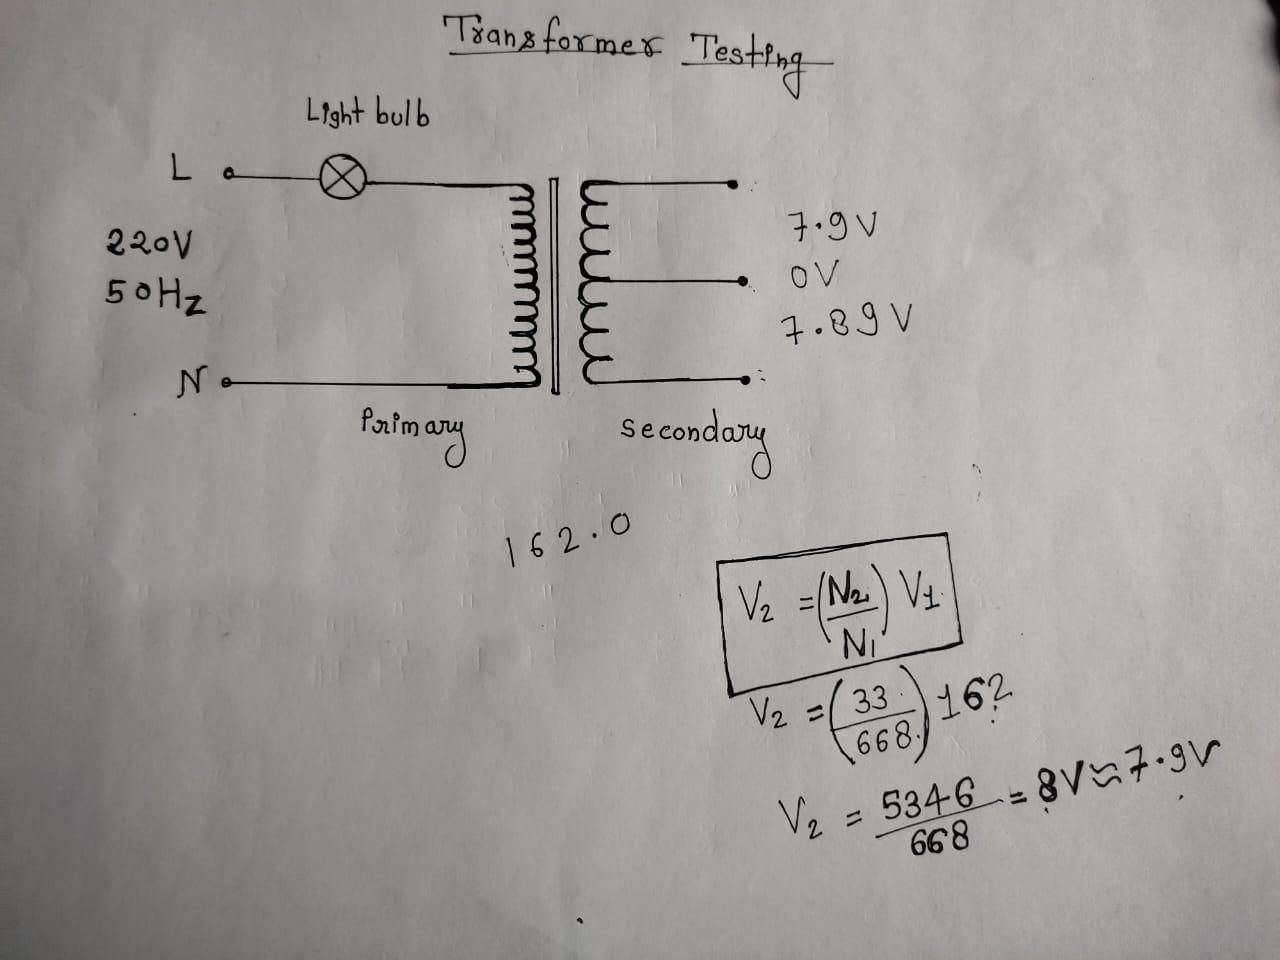 Transformer Testing
Light bulb
L
220V
50Hz
N
7.9V
0V
7.89V
Primary
secondary
162.0
V₂ = (N₂/N₁) V₁
V₂ = (33/668) 162
V₂ = 5346/668 = 8V ≈ 7.9V